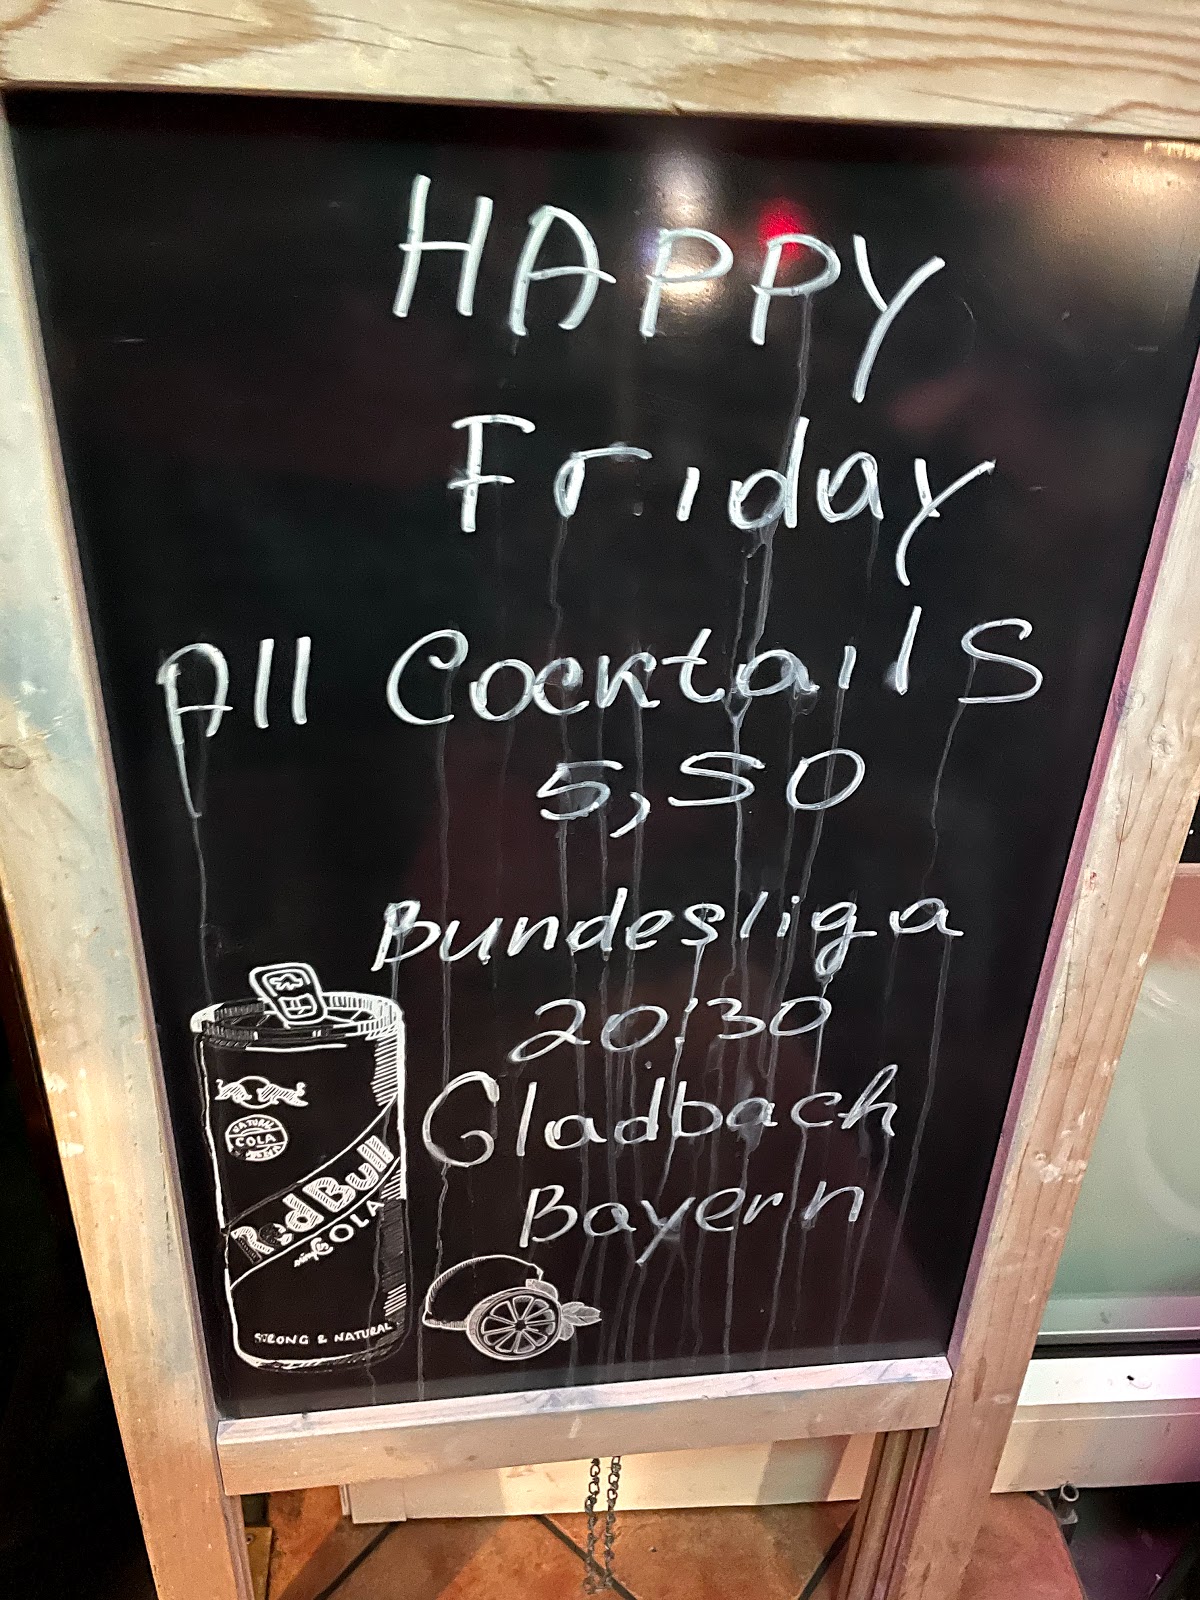 HAPPY
Friday
All Cocktails
5,50
Bundesliga
20:30
Gladbach
Bayern
NATURAL
COLA
Red Bull
simply COLA
STRONG & NATURAL